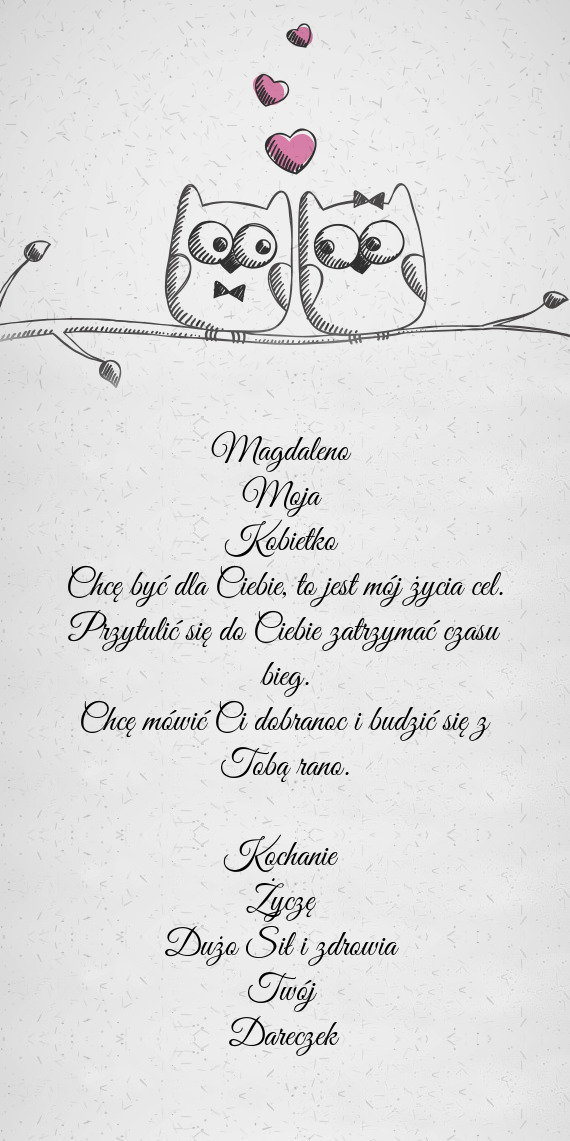 Magdaleno
Moja
Kobietko
Chcę być dla Ciebie, to jest mój życia cel.
Przytulić się do Ciebie zatrzymać czasu
bieg.
Chcę mówić Ci dobranoc i budzić się z
Tobą rano.

Kochanie
Życzę
Dużo Sił i zdrowia
Twój
Dareczek